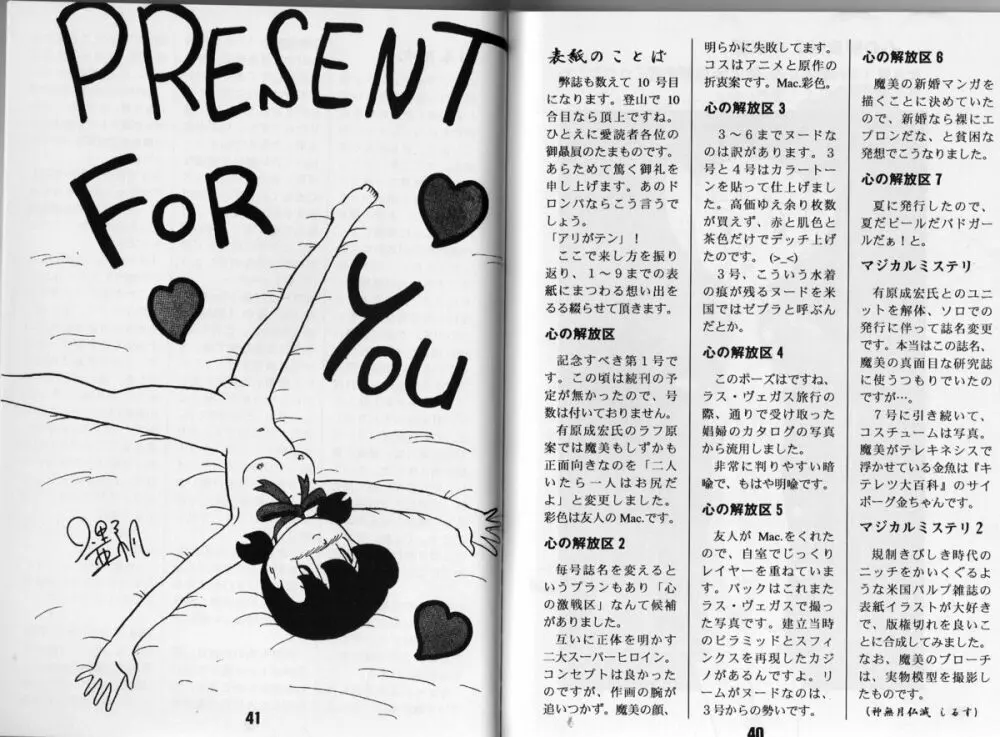 PRESENT
FOR
YOU
41
表紙のことば
弊誌も数えて10号目
になります。登山で10
合目なら頂上ですね。
ひとえに愛読者各位の
御贔屓のたまものです。
あらためて篤く御礼を
申し上げます。あのド
ロンパならこう言うで
しょう。
「アリがテン」！
ここで来し方を振り
返り、1～9までの表
紙にまつわる想い出を
るる綴らせて頂きます。
心の解放区
記念すべき第1号で
す。この頃は続刊の予
定が無かったので、号
数は付いておりません。
有原成宏氏のラフ原
案では魔美もしずかも
正面向きなのを「二人
いたら一人はお尻だ
よ」と変更しました。
彩色は友人のMac.です。
心の解放区 2
毎号誌名を変えると
いうプランもあり「心
の激戦区」なんて候補
がありました。
互いに正体を明かす
二大スーパーヒロイン。
コンセプトは良かった
のですが、作画の腕が
追いつかず。魔美の顔、
明らかに失敗してます。
コスはアニメと原作の
折衷案です。Mac.彩色。
心の解放区 3
3～6までヌードな
のは訳があります。3
号と4号はカラートー
ンを貼って仕上げまし
た。高価ゆえ余り枚数
が買えず、赤と肌色と
茶色だけでデッチ上げ
たのです。(>_<)
3号、こういう水着
の痕が残るヌードを米
国ではゼブラと呼ぶん
だとか。
心の解放区 4
このポーズはですね、
ラス・ヴェガス旅行の
際、通りで受け取った
娼婦のカタログの写真
から流用しました。
非常に判りやすい暗
喩で、もはや明喩です。
心の解放区 5
友人が Mac.をくれた
ので、自室でじっくり
レイヤーを重ねていま
す。バックはこれまた
ラス・ヴェガスで撮っ
た写真です。建立当時
のピラミッドとスフィ
ンクスを再現したカジ
ノがあるんですよ。リ
ームがヌードなのは、
3号からの勢いです。
心の解放区 6
魔美の新婚マンガを
描くことに決めていた
ので、新婚なら裸にエ
プロンだな、と貧困な
発想でこうなりました。
心の解放区 7
夏に発行したので、
夏だビールだバドガー
ルだぁ！と。
マジカルミステリ
有原成宏氏とのユニ
ットを解体、ソロでの
発行に伴って誌名変更
です。本当はこの誌名、
魔美の真面目な研究誌
に使うつもりでいたの
ですが…。
7号に引き続いて、
コスチュームは写真。
魔美がテレキネシスで
浮かせている金魚は『キ
テレツ大百科』のサイ
ボーグ金ちゃんです。
マジカルミステリ 2
規制きびしき時代の
ニッチをかいくぐるよ
うな米国パルプ雑誌の
表紙イラストが大好き
で、版権切れを良いこ
とに合成してみました。
なお、魔美のブローチ
は、実物模型を撮影し
たものです。
（神無月仏滅 しるす）
40